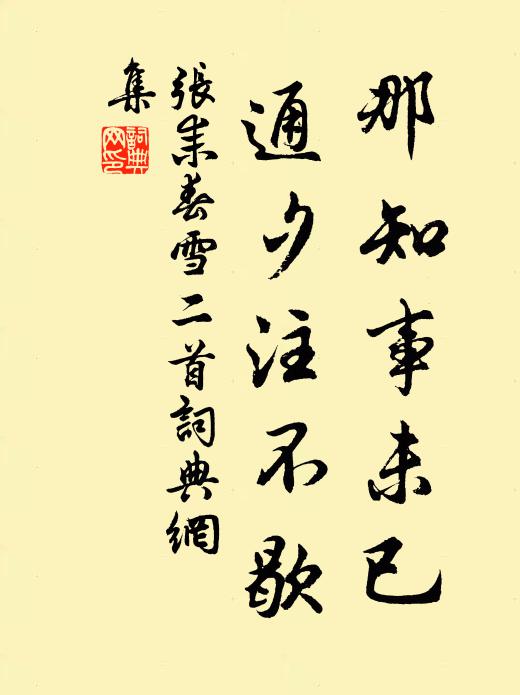 那知事未已
通夕注不歇
張耒春雪二首詞典網
集
詞典
网印